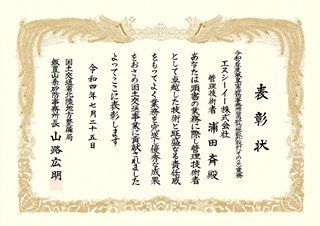 表彰状
エスシーイー株式会社
管理技術者 浦田 斉 殿
あなたは頭書の業務に際し管理技術者
として卓越した技術と旺盛なる責任感
をもってよく業務を完遂し優秀な成果
をおさめ国土交通事業に貢献されました
よってここに表彰します
令和四年七月二十五日
国土交通省北陸地方整備局
飯豊山系砂防事務所長 山路広明